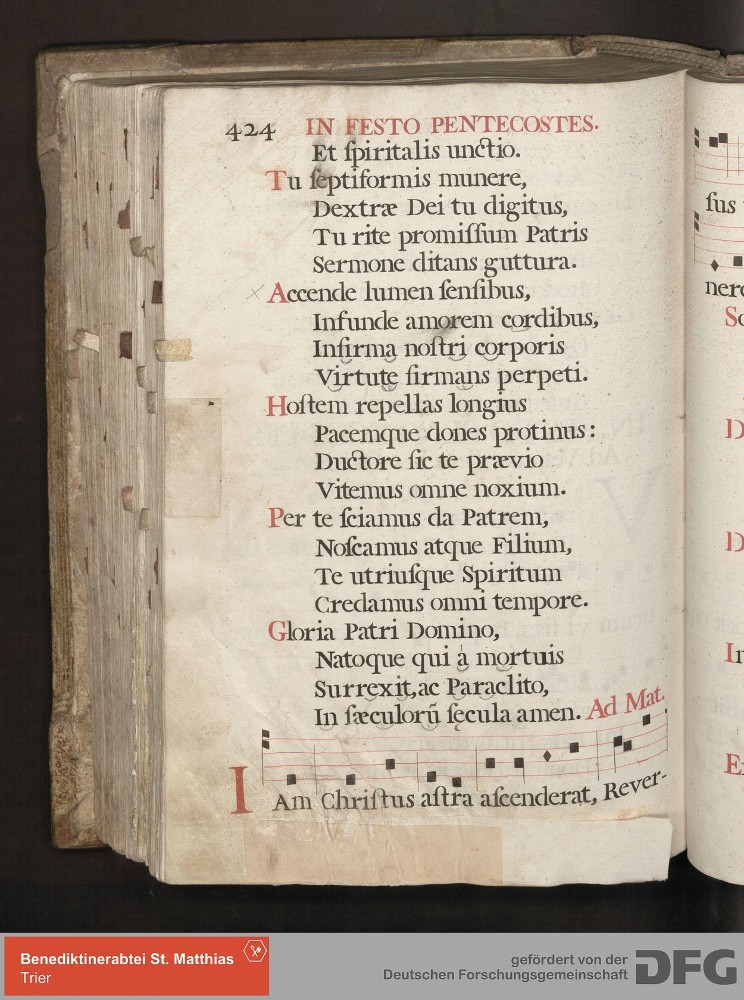 424 IN FESTO PENTECOSTES.
Et ſpiritalis unctio.
Tu ſeptiformis munere,
Dextræ Dei tu digitus,
Tu rite promiſſum Patris
Sermone ditans guttura.
Accende lumen ſenſibus,
Infunde amorem cordibus,
Infirma noſtri corporis
Virtute firmans perpeti.
Hoſtem repellas longius
Pacemque dones protinus:
Ductore ſic te prævio
Vitemus omne noxium.
Per te ſciamus da Patrem,
Noſcamus atque Filium,
Te utriuſque Spiritum
Credamus omni tempore.
Gloria Patri Domino,
Natoque qui à mortuis
Surrexit, ac Paraclito,
In ſæculorū ſęcula amen. Ad Mat.
IAm Chriſtus aſtra aſcenderat, Rever-
ſus
nere
Benediktinerabtei St. Matthias
Trier
gefördert von der
Deutschen Forschungsgemeinschaft
DFG